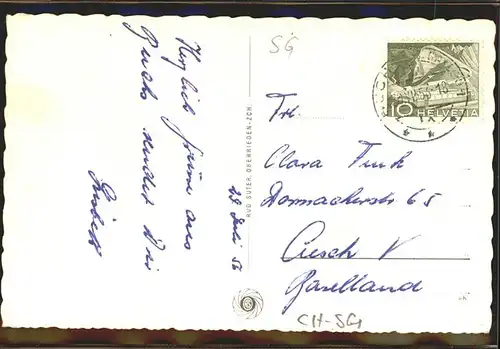 Herzlich Grüsse aus
Buchs sendet Dir
27 Juli 56
RUD. SUTER, OBERRIEDEN-ZCH.
SG
10 HELVETIA
Frl.
Clara Funck
Dornacherstr 65
Aesch
Baselland
CH-SG